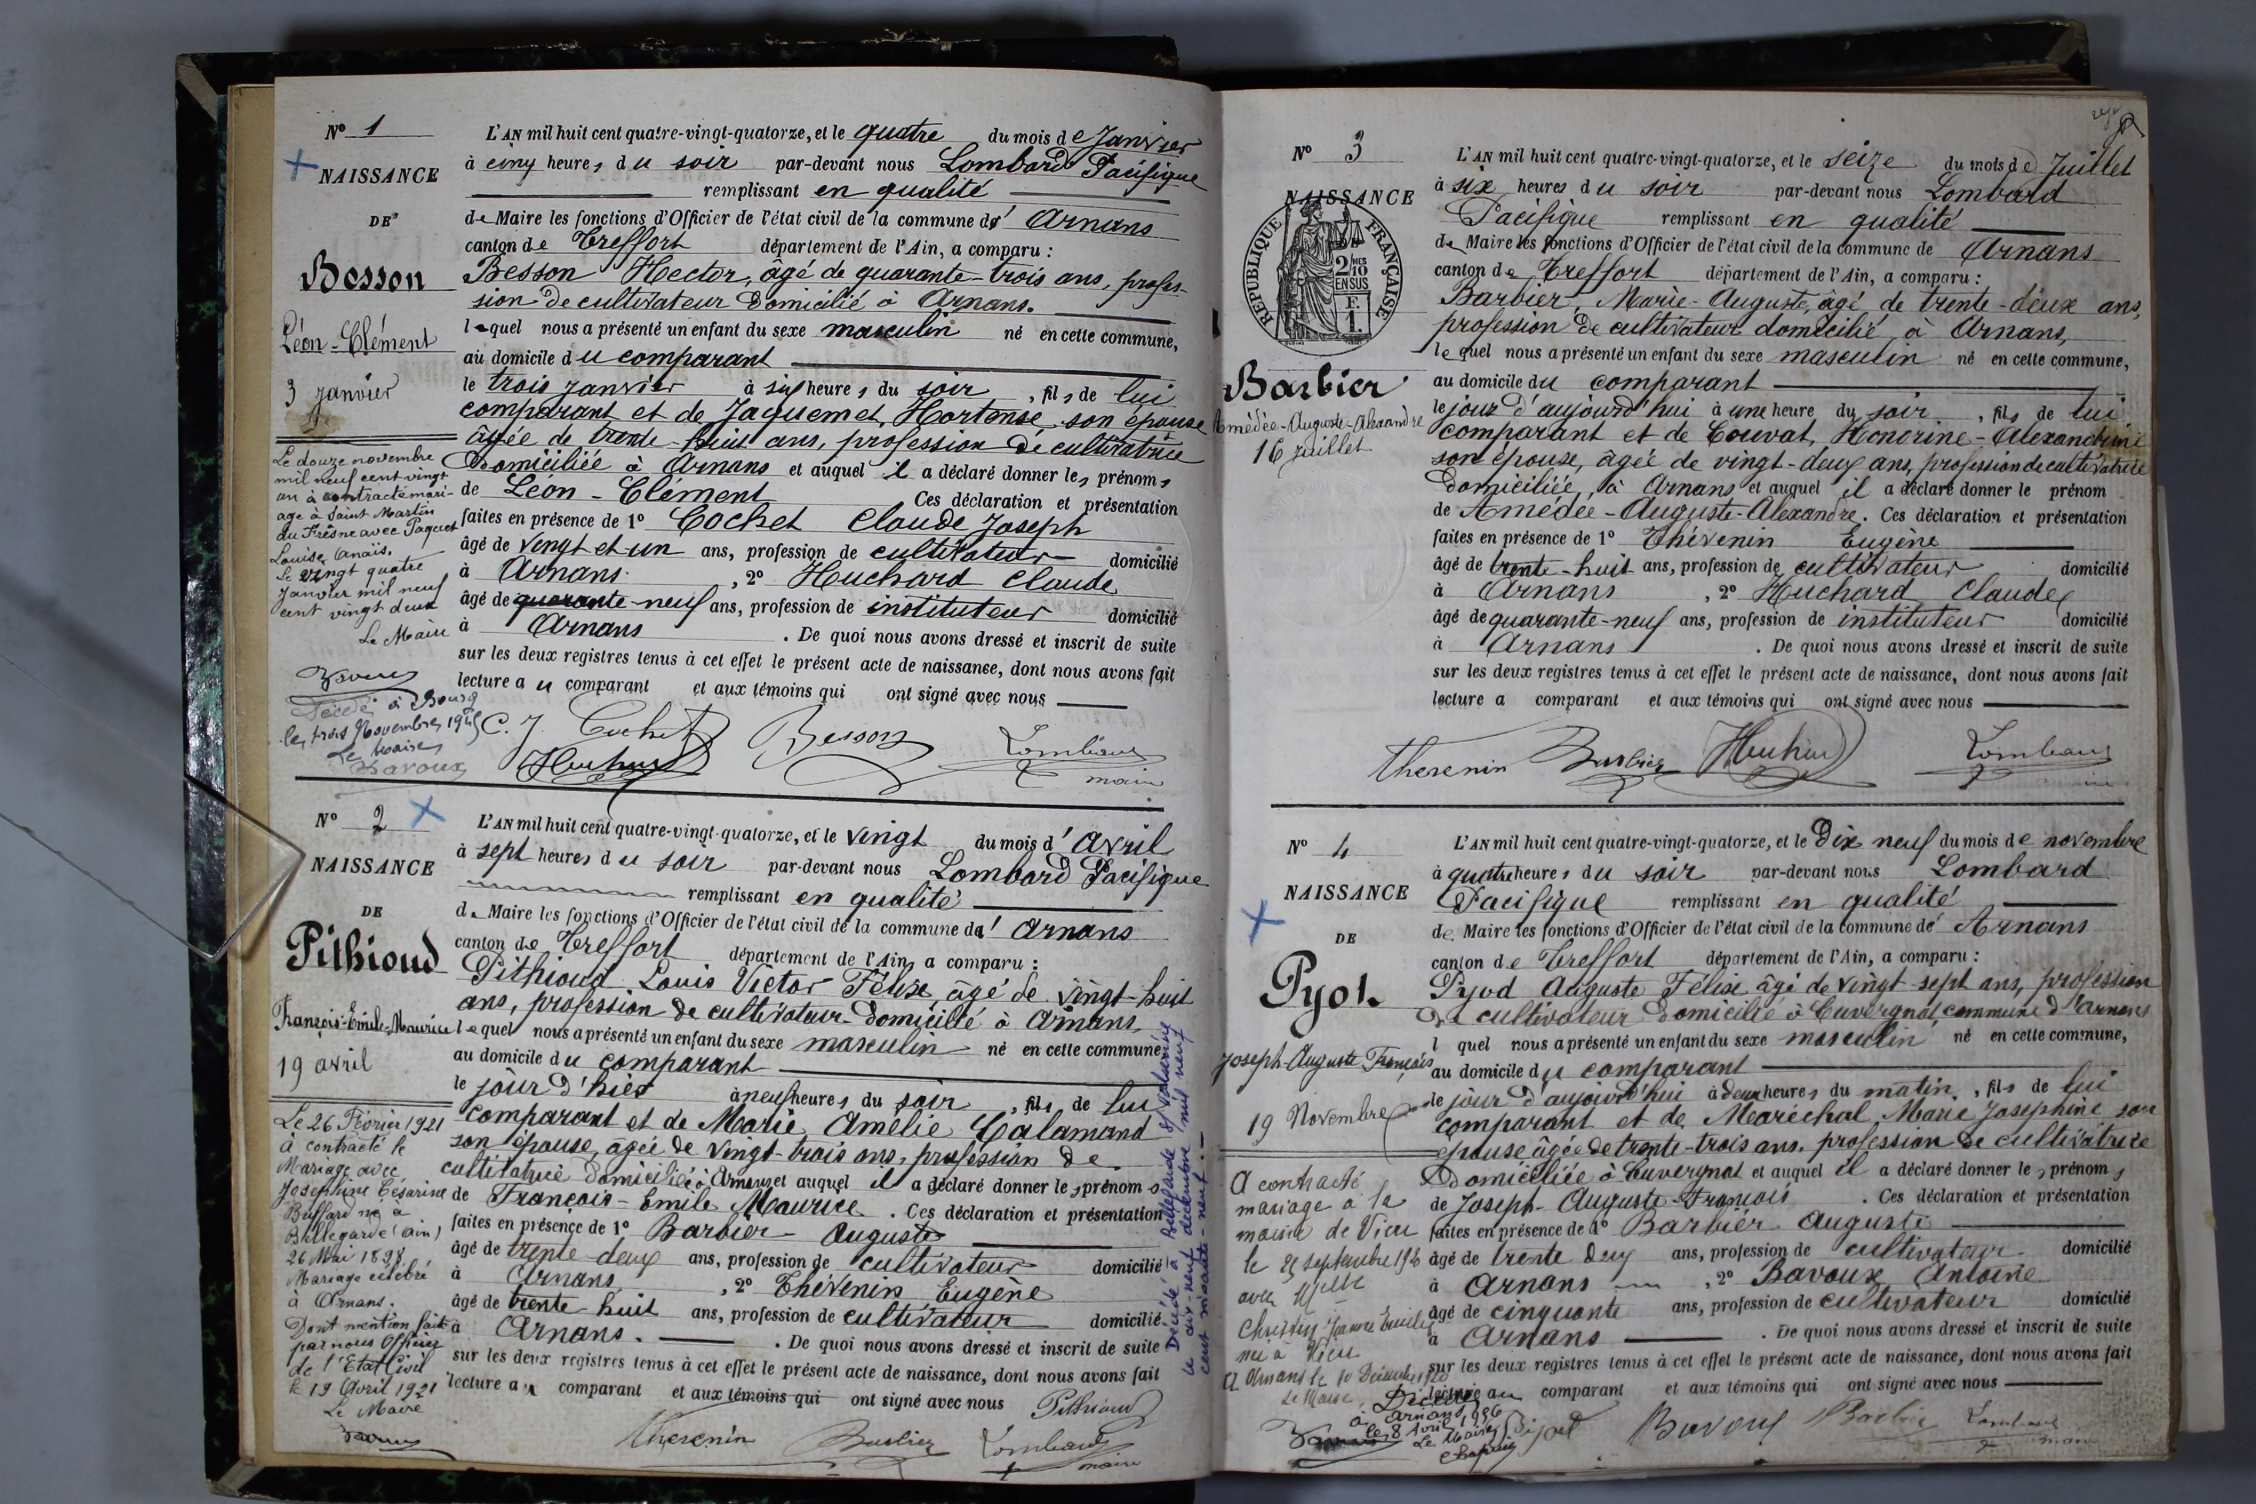 N° 1
NAISSANCE
DE
Besson
Léon-Clément
3 janvier
L'AN mil huit cent quatre-vingt-quatorze, et le quatre du mois de Janvier
à cinq heures du soir par-devant nous Lombard Pacifique
remplissant en qualité
de Maire les fonctions d'Officier de l'état civil de la commune d' Arnans
canton de Treffort département de l'Ain, a comparu :
Besson Hector, âgé de quarante-trois ans, profes-
sion de cultivateur domicilié à Arnans.
lequel nous a présenté un enfant du sexe masculin né en cette commune,
au domicile du comparant
le trois janvier à six heures du soir, fils de lui
comparant et de Jaquemet, Hortense, son épouse
âgée de trente-huit ans, profession de cultivatrice
domiciliée à Arnans et auquel il a déclaré donner les prénoms
de Léon-Clément Ces déclaration et présentation
faites en présence de 1° Cochet Claude Joseph
âgé de vingt et un ans, profession de cultivateur domicilié
à Arnans, 2° Huchard Claude
âgé de quarante-neuf ans, profession de instituteur domicilié
à Arnans. De quoi nous avons dressé et inscrit de suite
sur les deux registres tenus à cet effet le présent acte de naissance, dont nous avons fait
lecture au comparant et aux témoins qui ont signé avec nous
C. J. Cochet Besson Lombard
Huchard maire
Le douze novembre
mil neuf cent vingt
un à contracté mari-
age à Saint Martin
du Frêsne avec Paquet
Louise Anaïs.
Le vingt quatre
Janvier mil neuf
cent vingt deux
Le Maire
Bavoux
Décédé à Bourg
les trois Novembre 1945
Le Maire
Bavoux
N° 2
NAISSANCE
DE
Pithioud
François-Emile-Maurice
19 avril
L'AN mil huit cent quatre-vingt-quatorze, et le vingt du mois d'avril
à sept heures du soir par-devant nous Lombard Pacifique
remplissant en qualité
de Maire les fonctions d'Officier de l'état civil de la commune d' Arnans
canton de Treffort département de l'Ain, a comparu :
Pithioud Louis Victor Félix, âgé de vingt-huit
ans, profession de cultivateur domicilié à Arnans
lequel nous a présenté un enfant du sexe masculin né en cette commune,
au domicile du comparant
le jour d'hier à neuf heures du soir, fils de lui
comparant et de Marie Amélie Calamand
son épouse, âgée de vingt-trois ans, profession de
cultivatrice domiciliée à Arnans et auquel il a déclaré donner les prénoms
de François-Emile Maurice. Ces déclaration et présentation
faites en présence de 1° Barbier Auguste
âgé de trente deux ans, profession de cultivateur domicilié
à Arnans, 2° Thévenin Eugène
âgé de trente huit ans, profession de cultivateur domicilié
à Arnans. De quoi nous avons dressé et inscrit de suite
sur les deux registres tenus à cet effet le présent acte de naissance, dont nous avons fait
lecture au comparant et aux témoins qui ont signé avec nous Pithioud
Thevenin Barbier Lombard
maire
Le 26 Février 1921
à contracté le
Mariage avec
Joséphine Césarine
Buffard née à
Bellegarde (Ain)
26 Mai 1898
Mariage célébré
à Arnans.
Dont mention fait
par nous Officier
de l'Etat Civil
le 19 Avril 1921
Le Maire
Bavoux
Décédé à Bellegarde s/ Valserine
le dix-neuf décembre mil neuf
cent soixante-neuf.
N° 3
NAISSANCE
REPUBLIQUE FRANÇAISE
2 MES
10
EN SUS
F.
1.
Barbier
Amédée-Auguste-Alexandre
16 juillet
L'AN mil huit cent quatre-vingt-quatorze, et le seize du mois de Juillet
à six heures du soir par-devant nous Lombard
Pacifique remplissant en qualité
de Maire les fonctions d'Officier de l'état civil de la commune de Arnans
canton de Treffort département de l'Ain, a comparu :
Barbier, Marie-Auguste, âgé de trente-deux ans,
profession de cultivateur domicilié à Arnans,
lequel nous a présenté un enfant du sexe masculin né en cette commune,
au domicile du comparant
le jour d'aujourd'hui à une heure du soir, fils de lui
comparant et de Couvat, Honorine-Alexandrine
son épouse, âgée de vingt-deux ans, profession de cultivatrice
domiciliée, à Arnans et auquel il a déclaré donner le prénom
de Amédée-Auguste-Alexandre. Ces déclaration et présentation
faites en présence de 1° Thévenin Eugène
âgé de trente-huit ans, profession de cultivateur domicilié
à Arnans, 2° Huchard Claude
âgé de quarante-neuf ans, profession de instituteur domicilié
à Arnans. De quoi nous avons dressé et inscrit de suite
sur les deux registres tenus à cet effet le présent acte de naissance, dont nous avons fait
lecture a comparant et aux témoins qui ont signé avec nous
Thevenin Barbier Huchard Lombard
N° 4
NAISSANCE
DE
Pyot.
Joseph-Auguste François
19 Novembre
L'AN mil huit cent quatre-vingt-quatorze, et le Dix neuf du mois de novembre
à quatre heures du soir par-devant nous Lombard
Pacifique remplissant en qualité
de Maire les fonctions d'Officier de l'état civil de la commune de Arnans
canton de Treffort département de l'Ain, a comparu :
Pyod Auguste Félix âgé de vingt-sept ans, profession
de cultivateur domicilié à Cuvergnat commune d'Arnans
l quel nous a présenté un enfant du sexe masculin né en cette commune,
au domicile du comparant
le jour d'aujourd'hui à deux heures du matin, fils de lui
comparant et de Maréchal Marie Josephine son
épouse âgée de trente-trois ans. profession de cultivatrice
domiciliée à Cuvergnat et auquel il a déclaré donner les prénoms
de Joseph-Auguste-François. Ces déclaration et présentation
faites en présence de 1° Barbier Auguste
âgé de trente deux ans, profession de cultivateur domicilié
à Arnans, 2° Bavoux Antoine
âgé de cinquante ans, profession de cultivateur domicilié
à Arnans. De quoi nous avons dressé et inscrit de suite
sur les deux registres tenus à cet effet le présent acte de naissance, dont nous avons fait
lecture au comparant et aux témoins qui ont signé avec nous
Bavoux Barbier Lombard
maire
A contracté
mariage à la
mairie de Vieu
le 25 septembre 1920
avec Melle
Jeanne Emilie
née à Vieu
A Arnans le 10 Décembre 1920
Le Maire
Bavoux
Décédé
à Arnans
le 8 Avril 1956
Le Maire